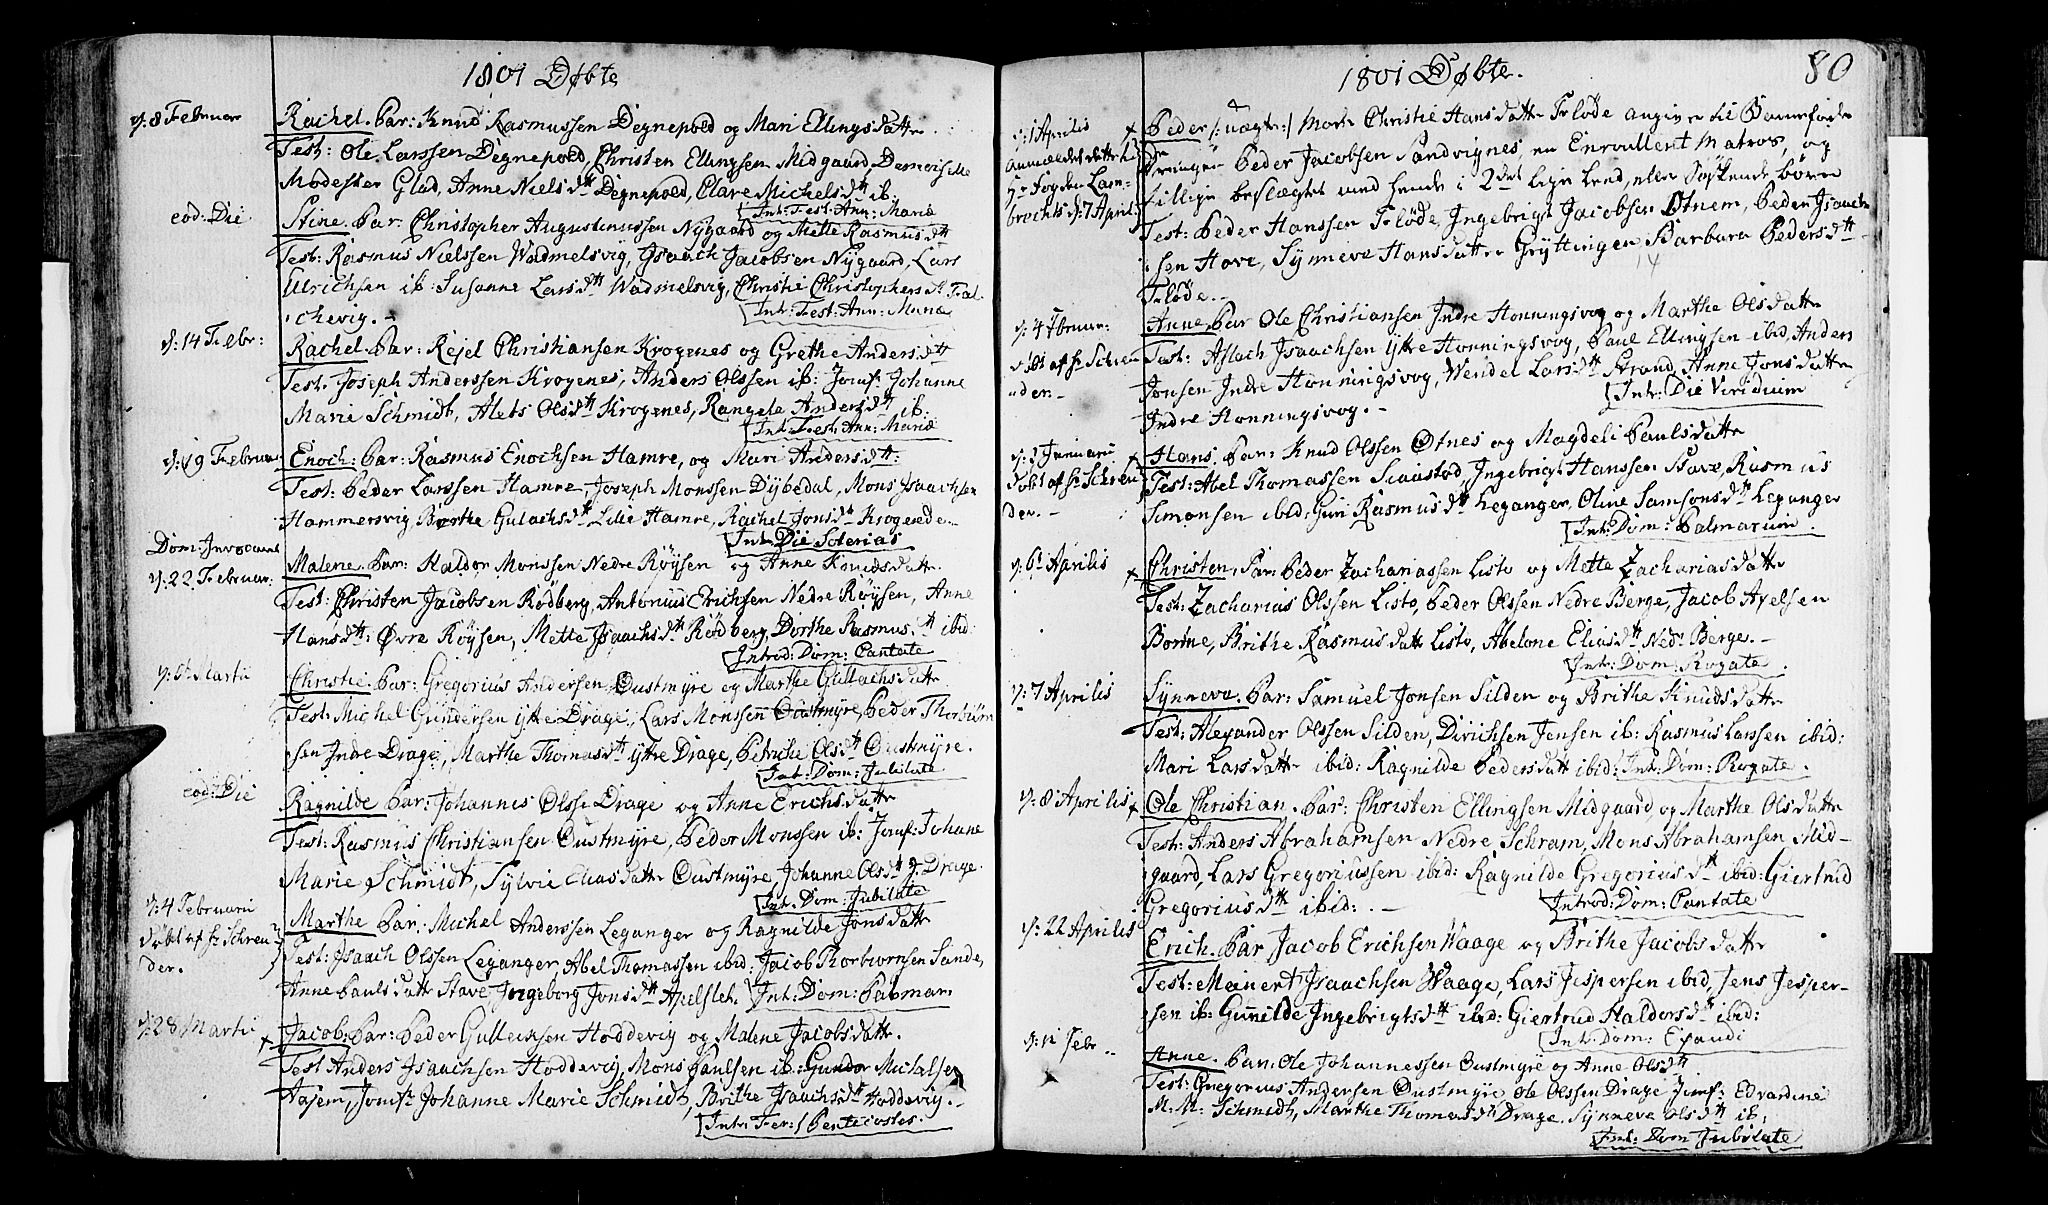 1801 Døbte
d: 8 Februar
Rachel. Par: Knud Rasmussen Degnepold og Mari Ellingsdatter
Test: Ole Larssen Degnepold, Christen Ellingsen Midgaard, Demoiselle
Modester Glad, Anne Nielsdtt Degnepold, Clare Michelsdtt ib:
Int: Fest: Ann: Mariæ
eod: Die
Stine. Par: Christopher Augustinussen Nygaard og Mette Rasmusdtt
Test: Rasmus Nielssen Wadmelsvig, Isaach Jacobsen Nygaard, Lars
Ulrichsen ib: Susanne Larsdtt Wadmelsvig, Christie Christophersdtt Fal-
chevig. -
Int: Fest: Ann: Mariæ
d: 14 Febr:
Rachel. Par: Rejel Christiansen Krogenes og Grethe Andersdtt
Test: Joseph Anderssen Krogenes, Anders Olssen ib: Jomf: Johanne
Marie Schmidt, Alets Olsdtt Krogenes, Rangele Andersdtt ib:
Int: Fest: Ann: Mariæ
d: 19 Februar
Enoch: Par: Rasmus Enochsen Hamre, og Mari Andersdtt:
Test: Peder Larssen Hamre, Joseph Monssen Dybedal, Mons Isaachsen
Hammersvig, Berthe Gulachsdtt Lille Hamre, Rachel Jonsdtt Krogenede. -
Int: Die Soterias
Dom: Invocavit
d: 22 Februar:
Malene. Par: Haldor Monssen Nedre Röysen og Anne Knudsdatter
Test: Christen Jacobsen Rödberg, Antonius Erichsen Nedre Röysen, Anne
Hansdtt: Øvre Röysen, Mette Isaachsdtt Rödberg, Dorthe Rasmusdtt ibid:
Introd: Dom: Cantate
Martii
Christie. Par: Gregorius Andersen Oustmyre og Marthe Gullachsdatter
Test: Michel Gundersen ytre Drage, Lars Monssen Oustmyre, Peder Thorbiörn
sen Indre Drage, Marthe Thomasdtt ytre Drage, Petriche Olsdtt Oustmyre.
Int: Dom: Jubilate
eod: Die
Ragnilde Par: Johannes Olss: Drage og Anne Erichsdatter
Test: Rasmus Christiansen Oustmyre, Peder Monssen ib: Jomf: Johane
Marie Schmidt, Sylvie Eliasdatter Oustmyre, Johanne Olsdtt J: Drage.
Int: Dom: Jubilate
d: 4 Februarii
döbt af hr Schreu-
der.
Marthe Par: Michel Anderssen Leganger og Ragnilde Jonsdatter
Test: Isaach Olssen Leganger, Abel Thomassen ibid: Jacob Thorbiörnsen Sande,
Anne Paulsdatter Stave, Ingeborg Jonsdtt Apelsleh. Int: Dom: Palmar:
d: 28 Martii
Jacob: Par: Peder Gulleiksen Hoddevig og Malene Jacobsdatter.
Test Anders Isaachsen Hoddevig, Mons Paulsen ib: Gundor Michelsen
Aajem, Jomfr Johanne Marie Schmidt, Brithe Isaachsdtt Hoddevig. -
Int: Fer: 1 Pentecostes.
1801 Døbte.
80
d: 1 Aprilis
Anmældet dette til
Hr Fogden Lam-
brechts d: 7 April:
Peder /: uægte :/ Moder Christie Hansdatter Fløde angiver til Barnefader
Drengen Peder Jacobsen Sandvignes, en Enroullert Matros, og
tillige beslægtet med hende i 2det Leje Lend, eller Söskende börn
Test: Peder Hanssen Fløde, Ingebrigt Jacobsen Otnem, Peder Isaach
sen Hove, Synneve Hansdatter Gryttingen, Barbara Pedersdtt
Fløde. -
d: 4 Februar:
döbt af hr Schreu
der. -
Anne. Par Ole Christiansen Indre Honningsvog og Marthe Olsdatter
Test: Aslach Isaachsen ytre Honningsvog, Paul Ellingsen ibid, Anders
Jonsen Indre Honningsvog, Wendel Larsdtt Strand, Anne Jonsdatter
Indre Honningsvog. -
Int: Die Viridium
Januarii
döbt af hr Schreu
der. -
Hans Par: Knud Olssen Otnes og Magdeli Paulsdatter
Test: Abel Thomassen Ingebrigt Hanssen Stave, Rasmus
Simonsen ibid: Guri Rasmusdtt Leganger, Oline Samsonsdtt Leganger
Int: Dom: Palmarum.
d: 6 Aprilis
Christen, Par: Peder Zachariassen Listo og Mette Zachariasdatter
Test: Zacharias Olssen Listo, Peder Olssen Nedre Berge, Jacob Axelsen
Bortne, Brithe Rasmusdatter Listo, Abelone Eliasdtt Ned: Berge. -
Int: Dom: Rogate.
d: 7 Aprilis
Synneva. Par: Samuel Jonsen Silden og Brithe Knudsdatter
Test: Alexander Olssen Silden, Dirichsen Jensen ib: Rasmus Larssen ibid:
Mari Larsdatter ibid: Ragnilde Pedersdatt ibid: Int: Dom: Rogate.
d: 8 Aprilis
Ole Christian. Par: Christen Ellingsen Midgaard, og Marthe Olsdatter
Test: Anders Abrahamsen Nedre Schram, Mons Abrahamsen Mid-
gaard, Lars Gregoriussen ibid: Ragnilde Gregoriusdtt ibid: Giertrud
Gregoriusdtt ibid: . -
Introd: Dom: Cantate
d: 22 Aprilis
Erich. Par Jacob Erichsen Waage og Brithe Jacobsdatter
Test: Meinert Isaachsen Waage, Lars Jespersen ibid, Jens Jesper-
sen ib: Gunilde Ingebrigtsdtt ibid: Giertrud Haldorsdtt ibid:
Int: Dom: Exaudi
d: 11 Febr.
Anne. Par: Ole Johannessen Oustmyre og Anne Olsdtt
Test: Gregorius Andersen Oustmyre Ole Olssen Drage Jomf: Edvardine
M. M: Schmidt, Marthe Thomasdtt Drage. Synneve Olsdtt ib:
Int: Dom Jubilate